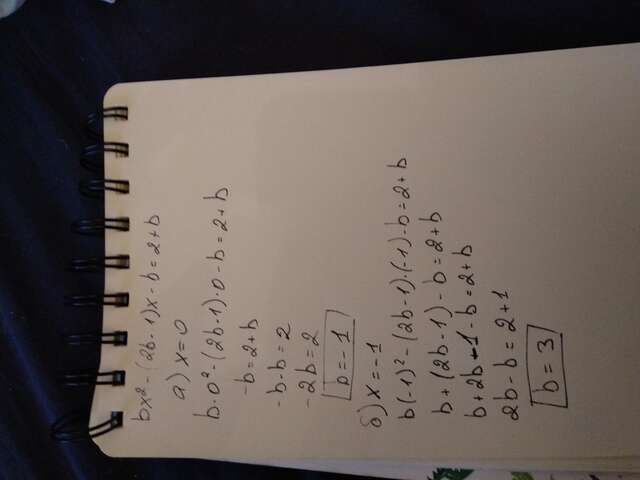 bx² - (2b - 1)x - b = 2 + b
а) x = 0
b · 0² - (2b - 1) · 0 - b = 2 + b
-b = 2 + b
-b - b = 2
-2b = 2
b = -1
б) x = -1
b(-1)² - (2b - 1) · (-1) - b = 2 + b
b + (2b - 1) - b = 2 + b
b + 2b - 1 - b = 2 + b
2b - b = 2 + 1
b = 3